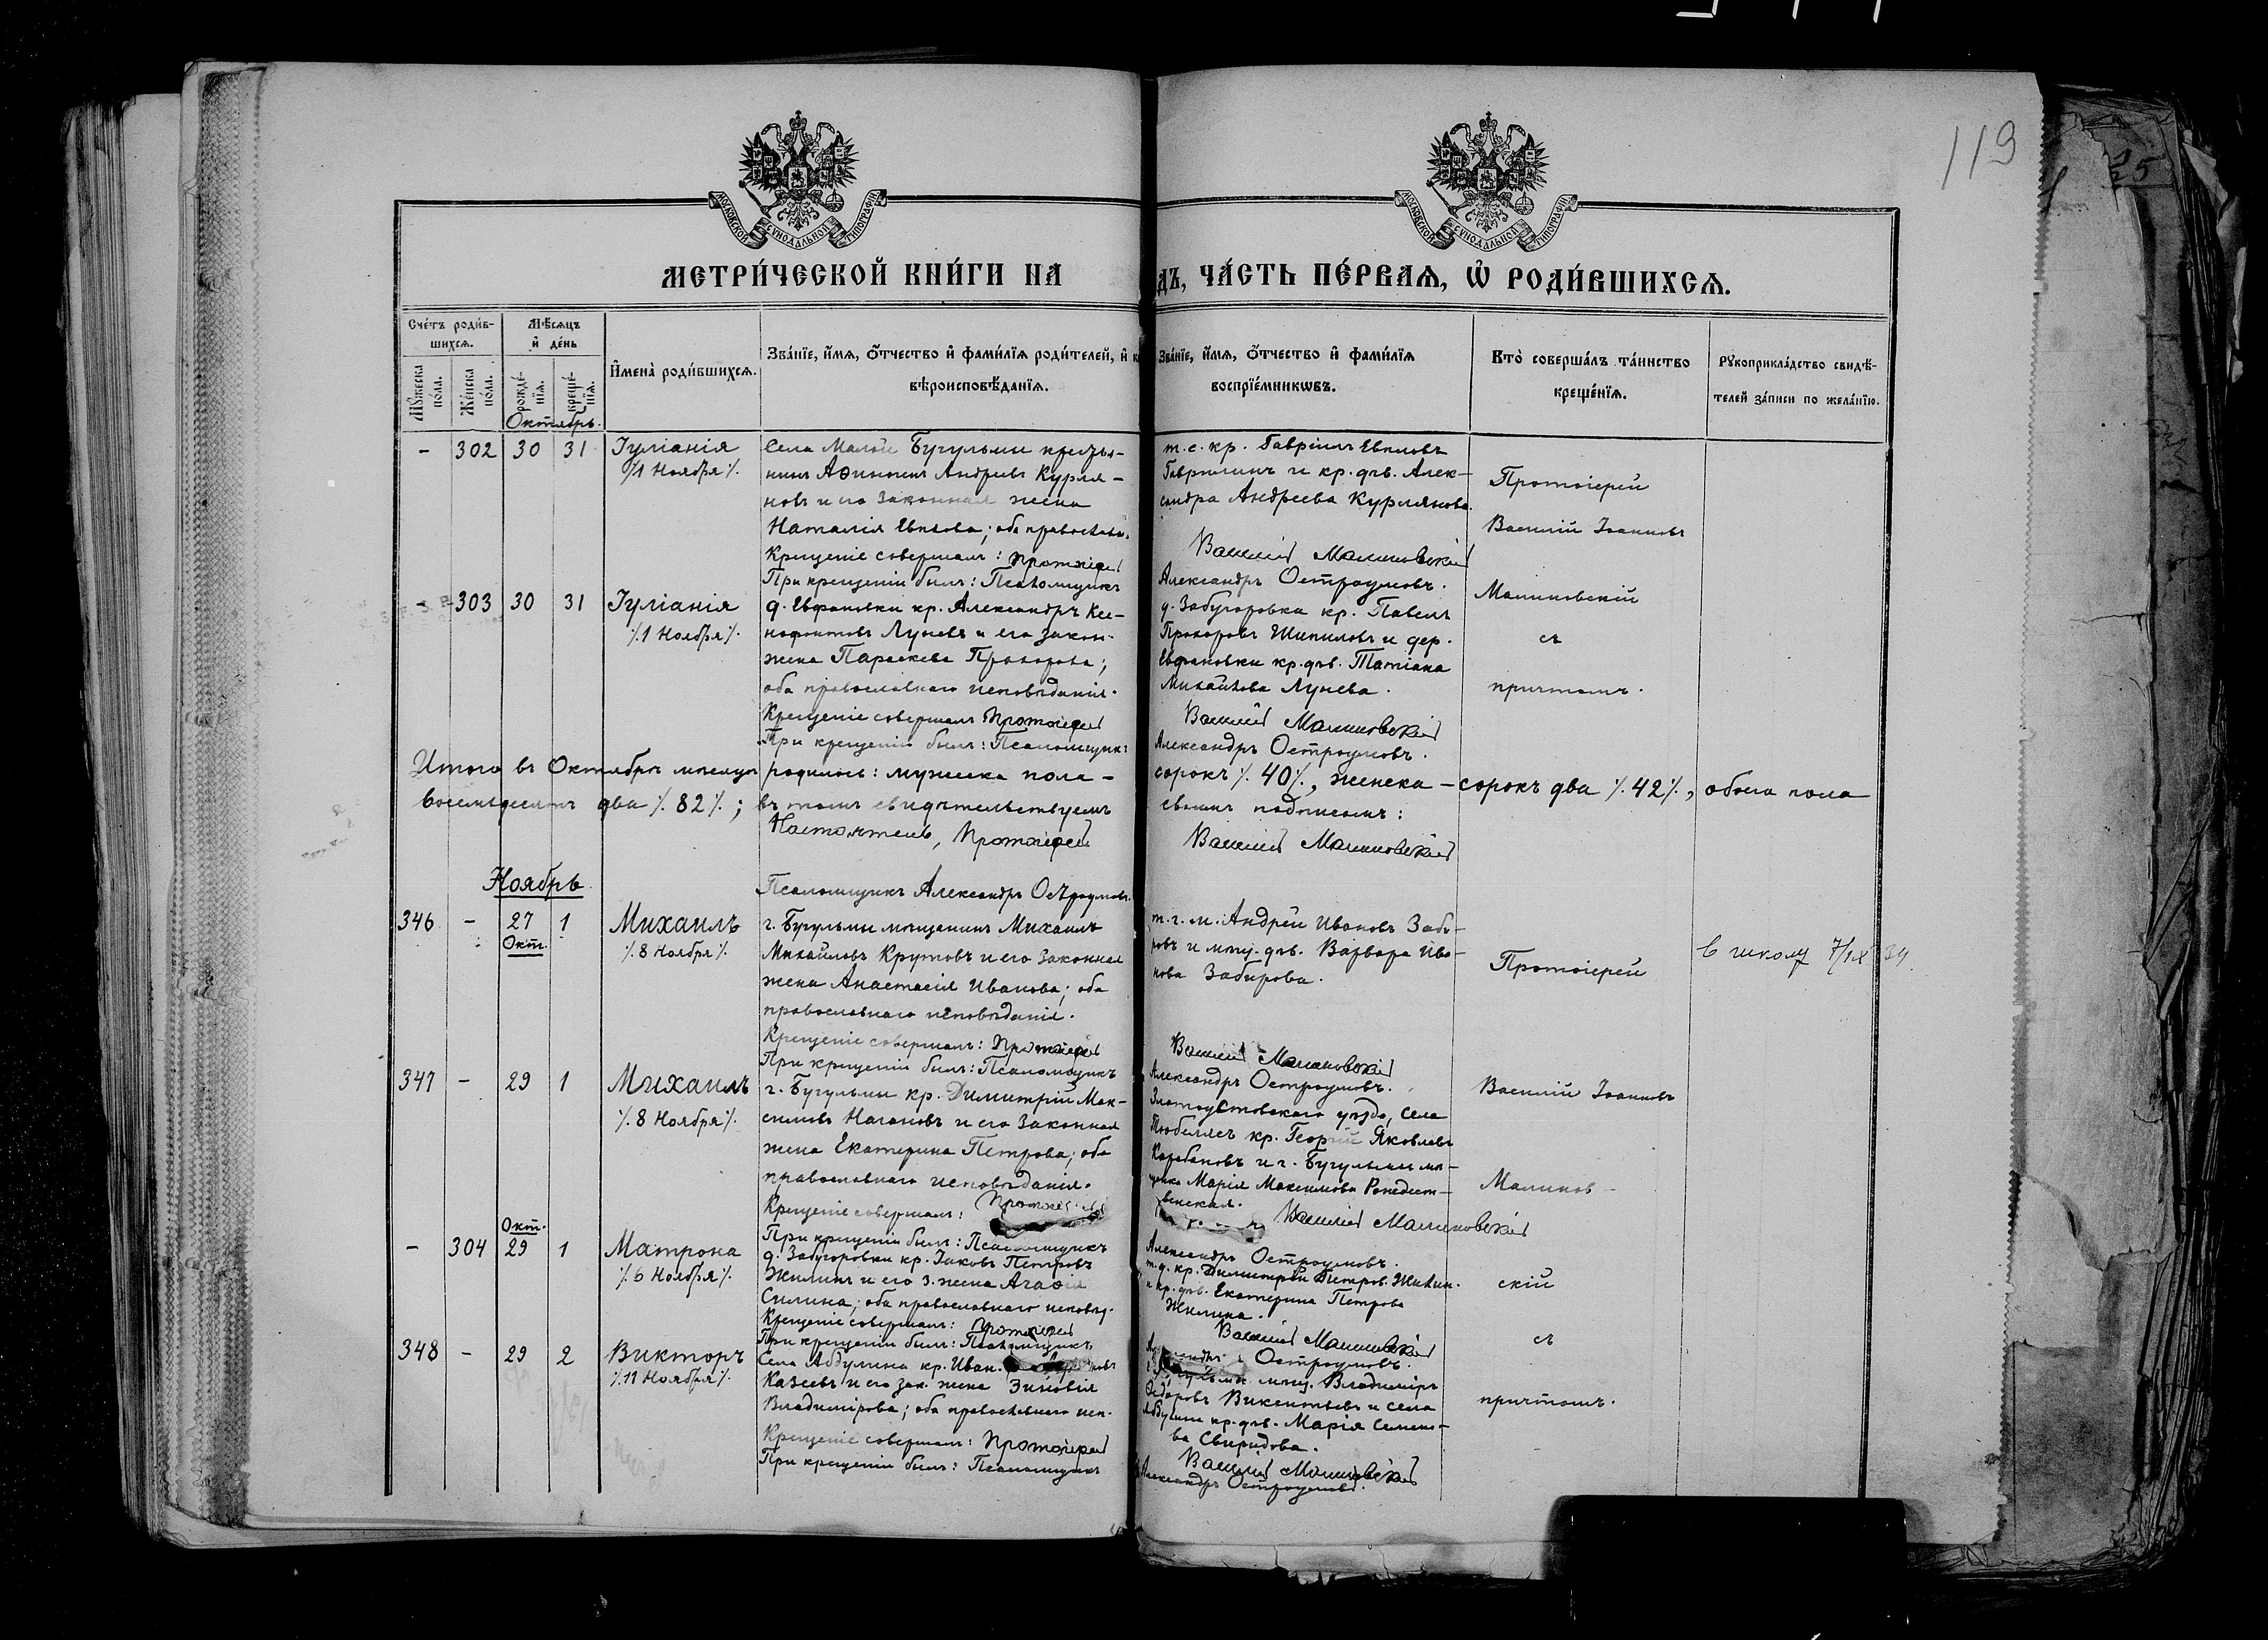 119
25
МОСКОВСКОЙ СѴНОДАЛЬНОЙ ТИПОГРАФІИ
МОСКОВСКОЙ СѴНОДАЛЬНОЙ ТИПОГРАФІИ
МЕТРИ́ЧЕСКОЙ КНИ́ГИ НА
ДЪ, ЧА́СТЬ ПЕ́РВАѦ, Ѡ҆ РОДИ́ВШИХСѦ.
Сче́тъ роди́в-
шихсѧ.
Мѣ́сѧцъ
и҆ де́нь
Мꙋ́жеска по́ла.
Же́нска по́ла.
рожде́-нїѧ.
креще́-нїѧ.
И҆мена̀ роди́вшихсѧ.
Зва́нїе, и҆́мѧ, ѻ҆́тчество и҆ фами́лїѧ роди́телей, и҆ к
вѣроисповѣ́данїѧ.
Зва́нїе, и҆́мѧ, ѻ҆́тчество и҆ фами́лїѧ
воспрїе́мникѡвъ.
Кто̀ соверша́лъ та́инство
креще́нїѧ.
Рꙋкоприкла́дство свидѣ́-
телей за́писи по жела́нїю.
Октябрь.
- 302 30 31 Іуліанія
/.1 Ноября/.
Села Малой Бугульмы крестья-
нинъ Аѳиногенъ Андреевъ Курля-
новъ и его законная жена
Наталія Евплова; оба православн.
Крещеніе совершалъ: Протоіерей
При крещеніи былъ: Псаломщикъ
т.с. кр. Гавріилъ Евпловъ
Гаврилинъ и кр. дѣв. Алек-
сандра Андреева Курлянова.
Василій Малиновскій
Александръ Остроумовъ.
Протоіерей
Василій Іоанновъ
Малиновскій
съ
причтомъ.
- 303 30 31 Іуліанія
/.1 Ноября/.
д. Евфановки кр. Александръ Ксе-
нофонтовъ Луневъ и его закон.
жена Параскева Прохорова;
оба православнаго исповѣданія.
Крещеніе совершалъ Протоіерей
При крещеніи былъ: Псаломщикъ
д. Забугоровка кр. Павелъ
Прохоровъ Шипиловъ и дер.
Евфановки кр. дѣв. Татіана
Михайлова Лунева.
Василій Малиновскій
Александръ Остроумовъ.
Итого въ Октябрѣ мѣсяцѣ родилось: мужеска пола - сорокъ /.40/., женска - сорокъ два /.42/., обоего пола
восемьдесятъ два /.82/.; въ томъ свидѣтельствуемъ своимъ подписомъ:
Настоятель, Протоіерей Василій Малиновскій
Псаломщикъ Александръ Остроумовъ.
Ноябрь
346 - 27 1 Михаилъ
Окт. /.8 Ноября/.
г. Бугульмы мѣщанинъ Михаилъ
Михайловъ Крутовъ и его законная
жена Анастасія Иванова; оба
православнаго исповѣданія.
Крещеніе совершалъ: Протоіерей
При крещеніи былъ: Псаломщикъ
т.г. м. Андрей Ивановъ Заби-
ровъ и мѣщ. дѣв. Варвара Ива-
нова Забирова.
Василій Малиновскій
Александръ Остроумовъ.
Протоіерей
Василій Іоанновъ
Малинов-
скій
съ
причтомъ.
в школу 7/IX 34
347 - 29 1 Михаилъ
/.8 Ноября/.
г. Бугульмы кр. Димитрій Мак-
симовъ Нагановъ и его законная
жена Екатерина Петрова; оба
православнаго исповѣданія.
Крещеніе совершалъ: Протоіерей
При крещеніи былъ: Псаломщикъ
Златоустовскаго уѣзда, села
кр. Георгій Яковлевъ
Карабановъ и г. Бугульмы мѣ-
щанка Марія Максимова
Василій Малиновскій
Александръ Остроумовъ.
Окт.
- 304 29 1 Матрона
/.6 Ноября/.
д. Забугоровки кр. Іаковъ Петровъ
Жилинъ и его з. жена Агаѳія
Силина; оба православнаго исповѣд.
Крещеніе совершалъ: Протоіерей
При крещеніи былъ: Псаломщикъ
т.д. кр. Димитрій Петров. Жилин.
и кр. дѣв. Екатерина Петрова
Жилина.
Василій Малиновскій
Остроумовъ.
348 - 29 2 Викторъ
/.11 Ноября/.
Села Абдулина кр. Иван.
Казеевъ и его зак. жена Зиновія
Владимірова; оба православнаго исп.
Крещеніе совершалъ: Протоіерей
При крещеніи былъ: Псаломщикъ
мѣщ. Владиміръ
Ѳедоровъ Викентьевъ и села
Абдулина кр. дѣв. Марія Семено-
ва Свиридова.
Василій Малиновскій
Александръ Остроумовъ.